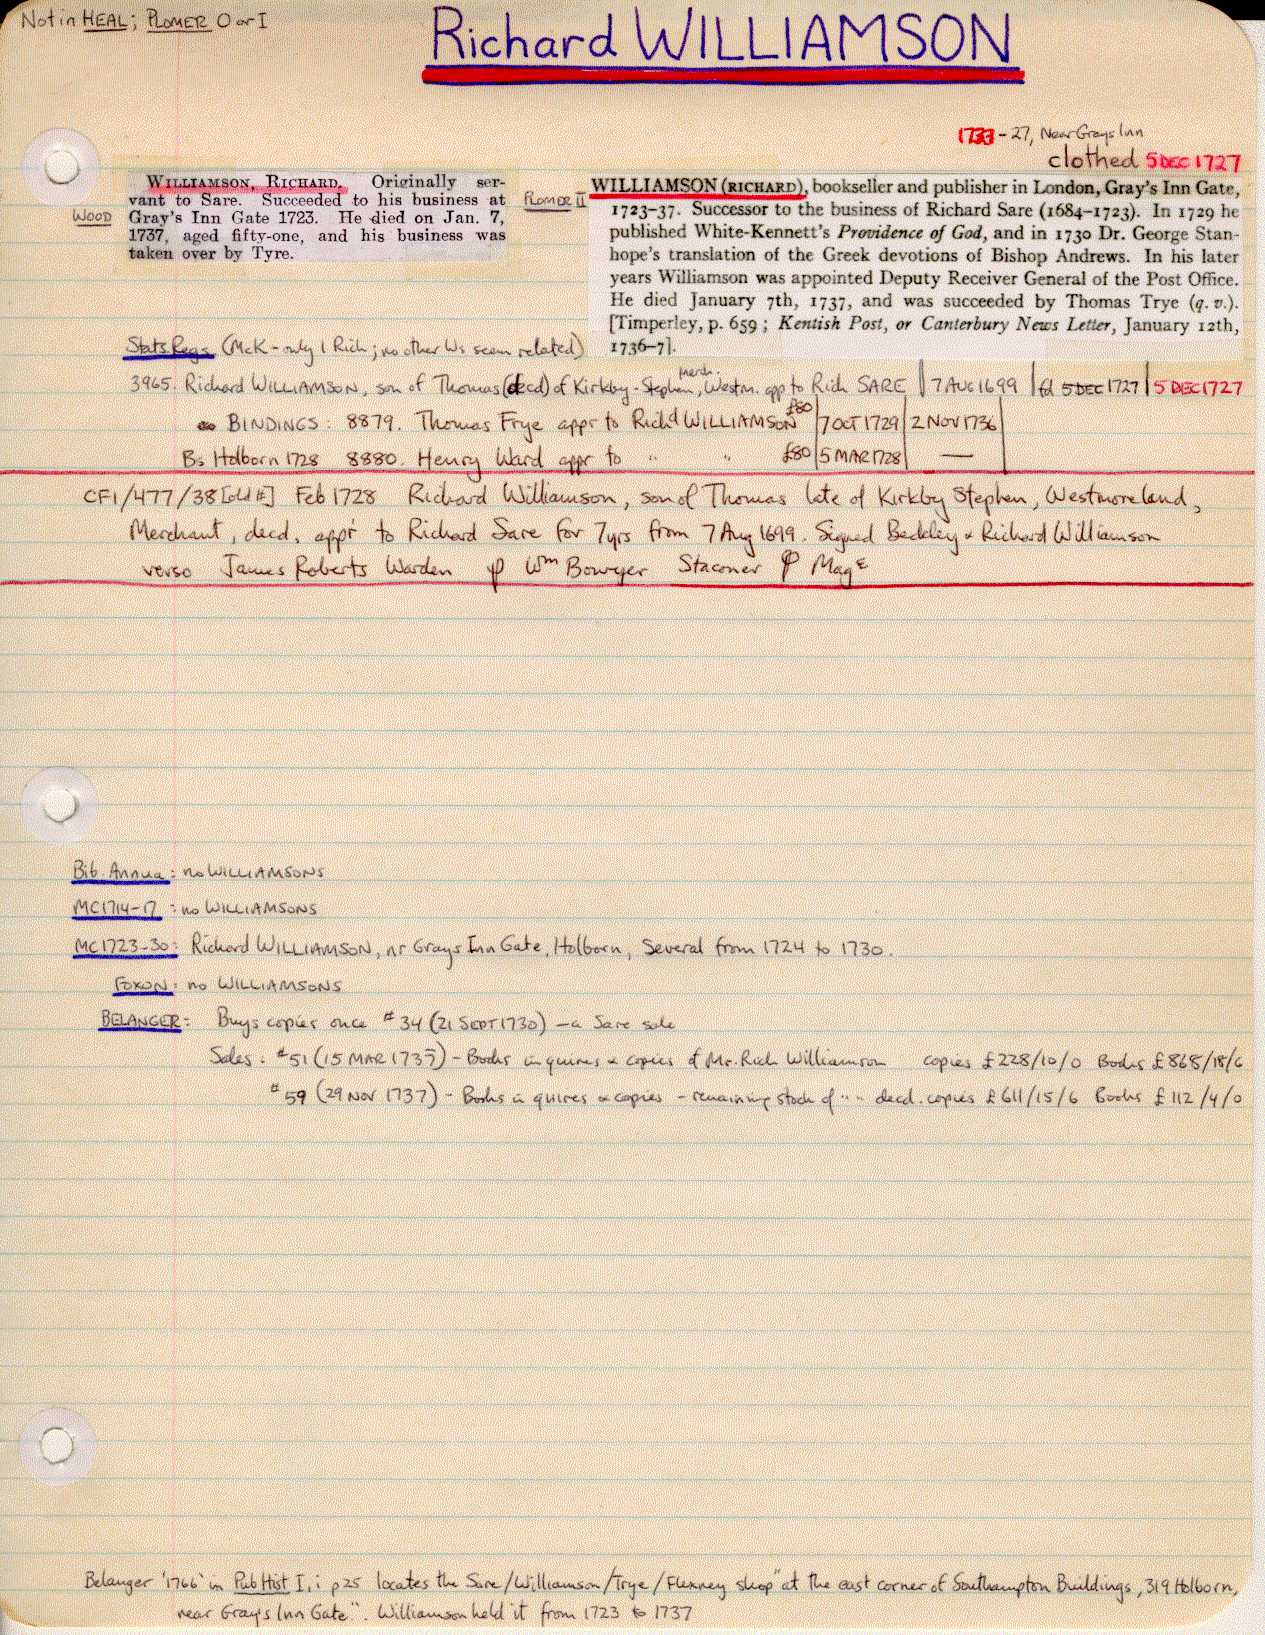 Not in HEAL; PLOMER O or I
Richard WILLIAMSON
1733 - 27, Near Grays Inn
clothed 5 DEC 1727
WOOD
WILLIAMSON, RICHARD. Originally ser-
vant to Sare. Succeeded to his business at
Gray's Inn Gate 1723. He died on Jan. 7,
1737, aged fifty-one, and his business was
taken over by Tyre.
PLOMER II
WILLIAMSON (RICHARD), bookseller and publisher in London, Gray's Inn Gate,
1723–37. Successor to the business of Richard Sare (1684–1723). In 1729 he
published White-Kennett's Providence of God, and in 1730 Dr. George Stan-
hope's translation of the Greek devotions of Bishop Andrews. In his later
years Williamson was appointed Deputy Receiver General of the Post Office.
He died January 7th, 1737, and was succeeded by Thomas Trye (q. v.).
[Timperley, p. 659 ; Kentish Post, or Canterbury News Letter, January 12th,
1736–7].
Stats Regs (McK - only 1 Rich; no other Ws seem related)
3965. Richard WILLIAMSON, son of Thomas (decd) of Kirkby-Stephen, merch. Westm. app to Rich SARE | 7 AUG 1699 | fd 5 DEC 1727 | 5 DEC 1727
BINDINGS: 8879. Thomas Frye appr to Richd WILLIAMSON £80 | 7 OCT 1729 | 2 NOV 1736
Bs Holborn 1728 8880. Henry Ward appr to " " £80 | 5 MAR 1728 | —
CF1/477/38 [old #] Feb 1728 Richard Williamson, son of Thomas late of Kirkby Stephen, Westmoreland,
Merchant, decd, appr to Richard Sare for 7 yrs from 7 Aug 1699. Signed Beckley & Richard Williamson
verso James Roberts Warden Wm Bowyer Staconer Mage
Bib. Annua: no WILLIAMSONS
MC1714-17: no WILLIAMSONS
MC1723-30: Richard WILLIAMSON, nr Grays Inn Gate, Holborn, Several from 1724 to 1730.
FOXON: no WILLIAMSONS
BELANGER: Buys copies once #34 (21 SEPT 1730) - a Sare sale
Sales: #51 (15 MAR 1737) - Books in quires & copies of Mr. Rich Williamson copies £228/10/0 Books £868/18/6
#59 (29 NOV 1737) - Books in quires & copies - remaining stock of " " decd. copies £611/15/6 Books £112/4/0
Belanger '1766' in Pub Hist I, i p25 locates the Sare/Williamson/Trye/Flexney shop "at the east corner of Southampton Buildings, 319 Holborn,
near Gray's Inn Gate". Williamson held it from 1723 to 1737